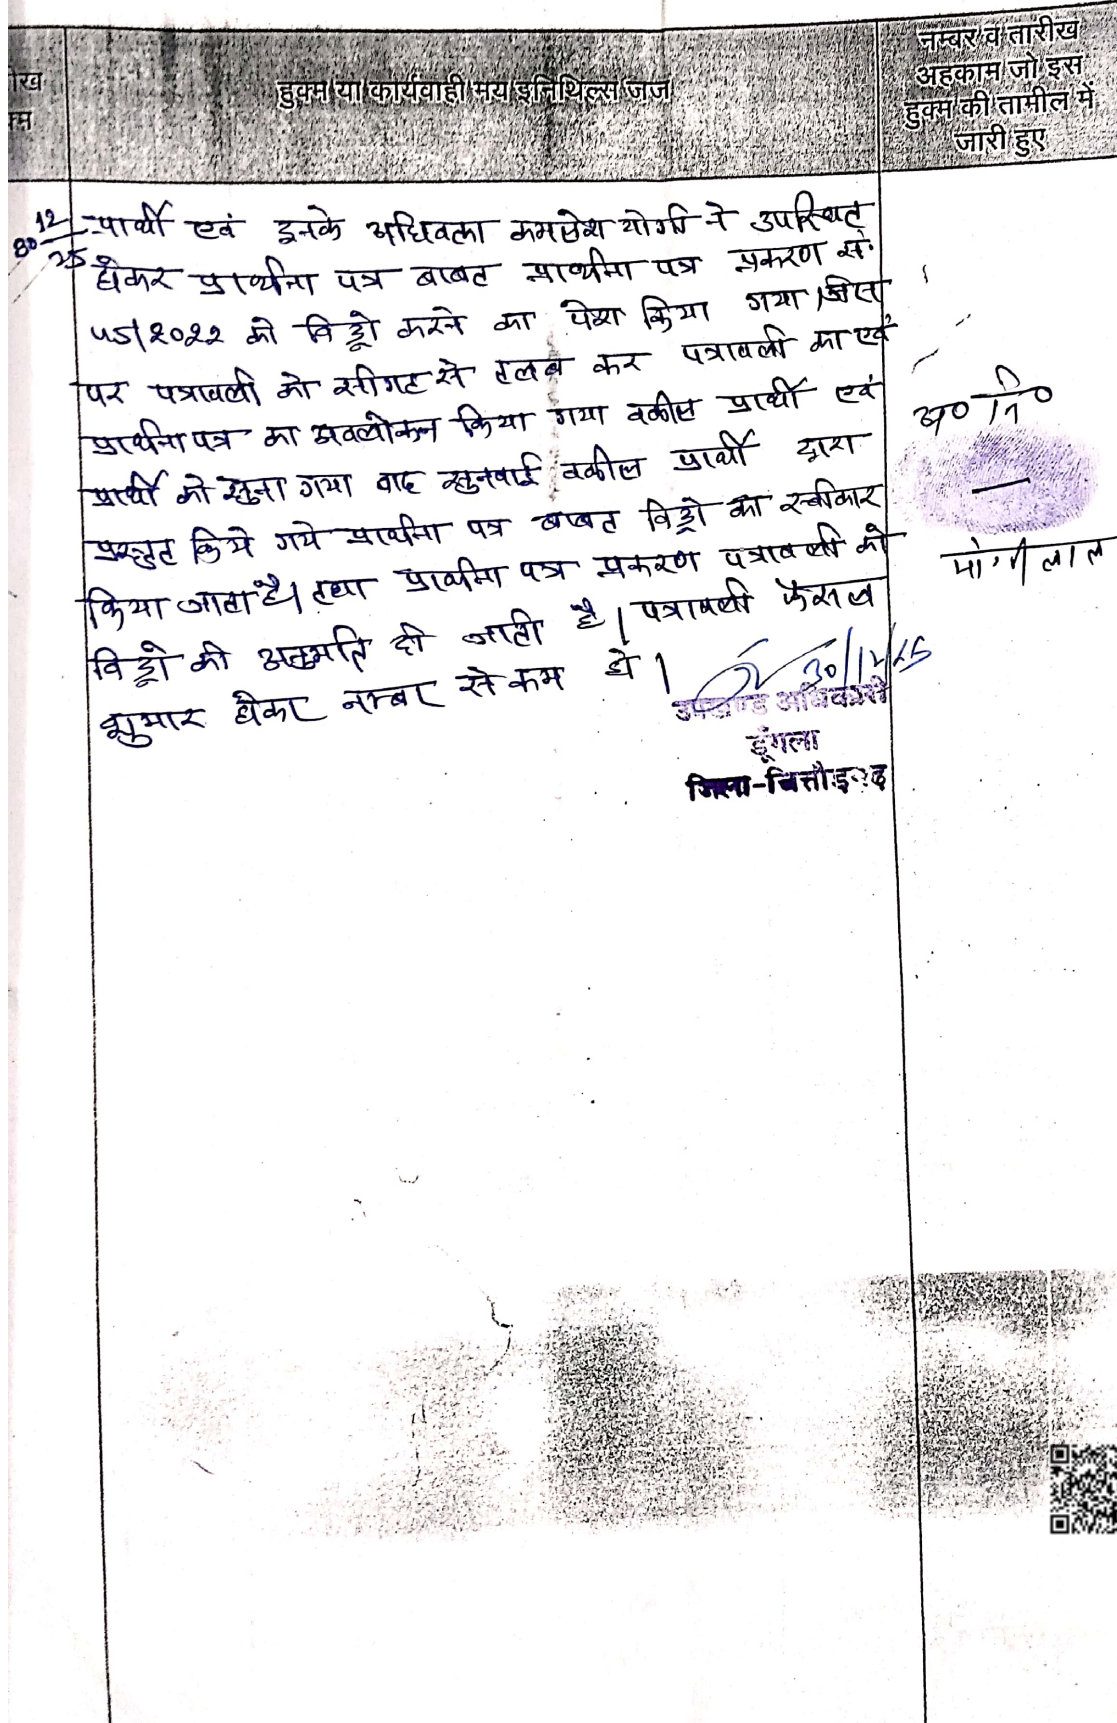 हुक्म या कार्यवाही मय इनिथिल्स जज
नम्बर व तारीख
अहकाम जो इस
हुक्म की तामील में
जारी हुए
30/12/25
प्रार्थी एवं इनके अधिवक्ता कमलेश योगी ने उपस्थित
होकर प्रार्थना पत्र बाबत प्रार्थना पत्र प्रकरण सं.
45/2022 को विड्रो करने का पेश किया गया। जिस
पर पत्रावली को सीगट से तलब कर पत्रावली का एवं
प्रार्थना पत्र का अवलोकन किया गया वकील प्रार्थी एवं
प्रार्थी को सुना गया बाद सुनवाई वकील प्रार्थी द्वारा
प्रस्तुत किये गये प्रार्थना पत्र बाबत विड्रो का स्वीकार
किया जाता है। तथा प्रार्थना पत्र प्रकरण पत्रावली को
विड्रो की अनुमति दी जाती है। पत्रावली फैसल
शुमार होकर नम्बर से कम हो।
30/12/25
उपखण्ड अधिकारी
डूंगला
जिला-चित्तौड़गढ़
अ० नि०
मांगीलाल